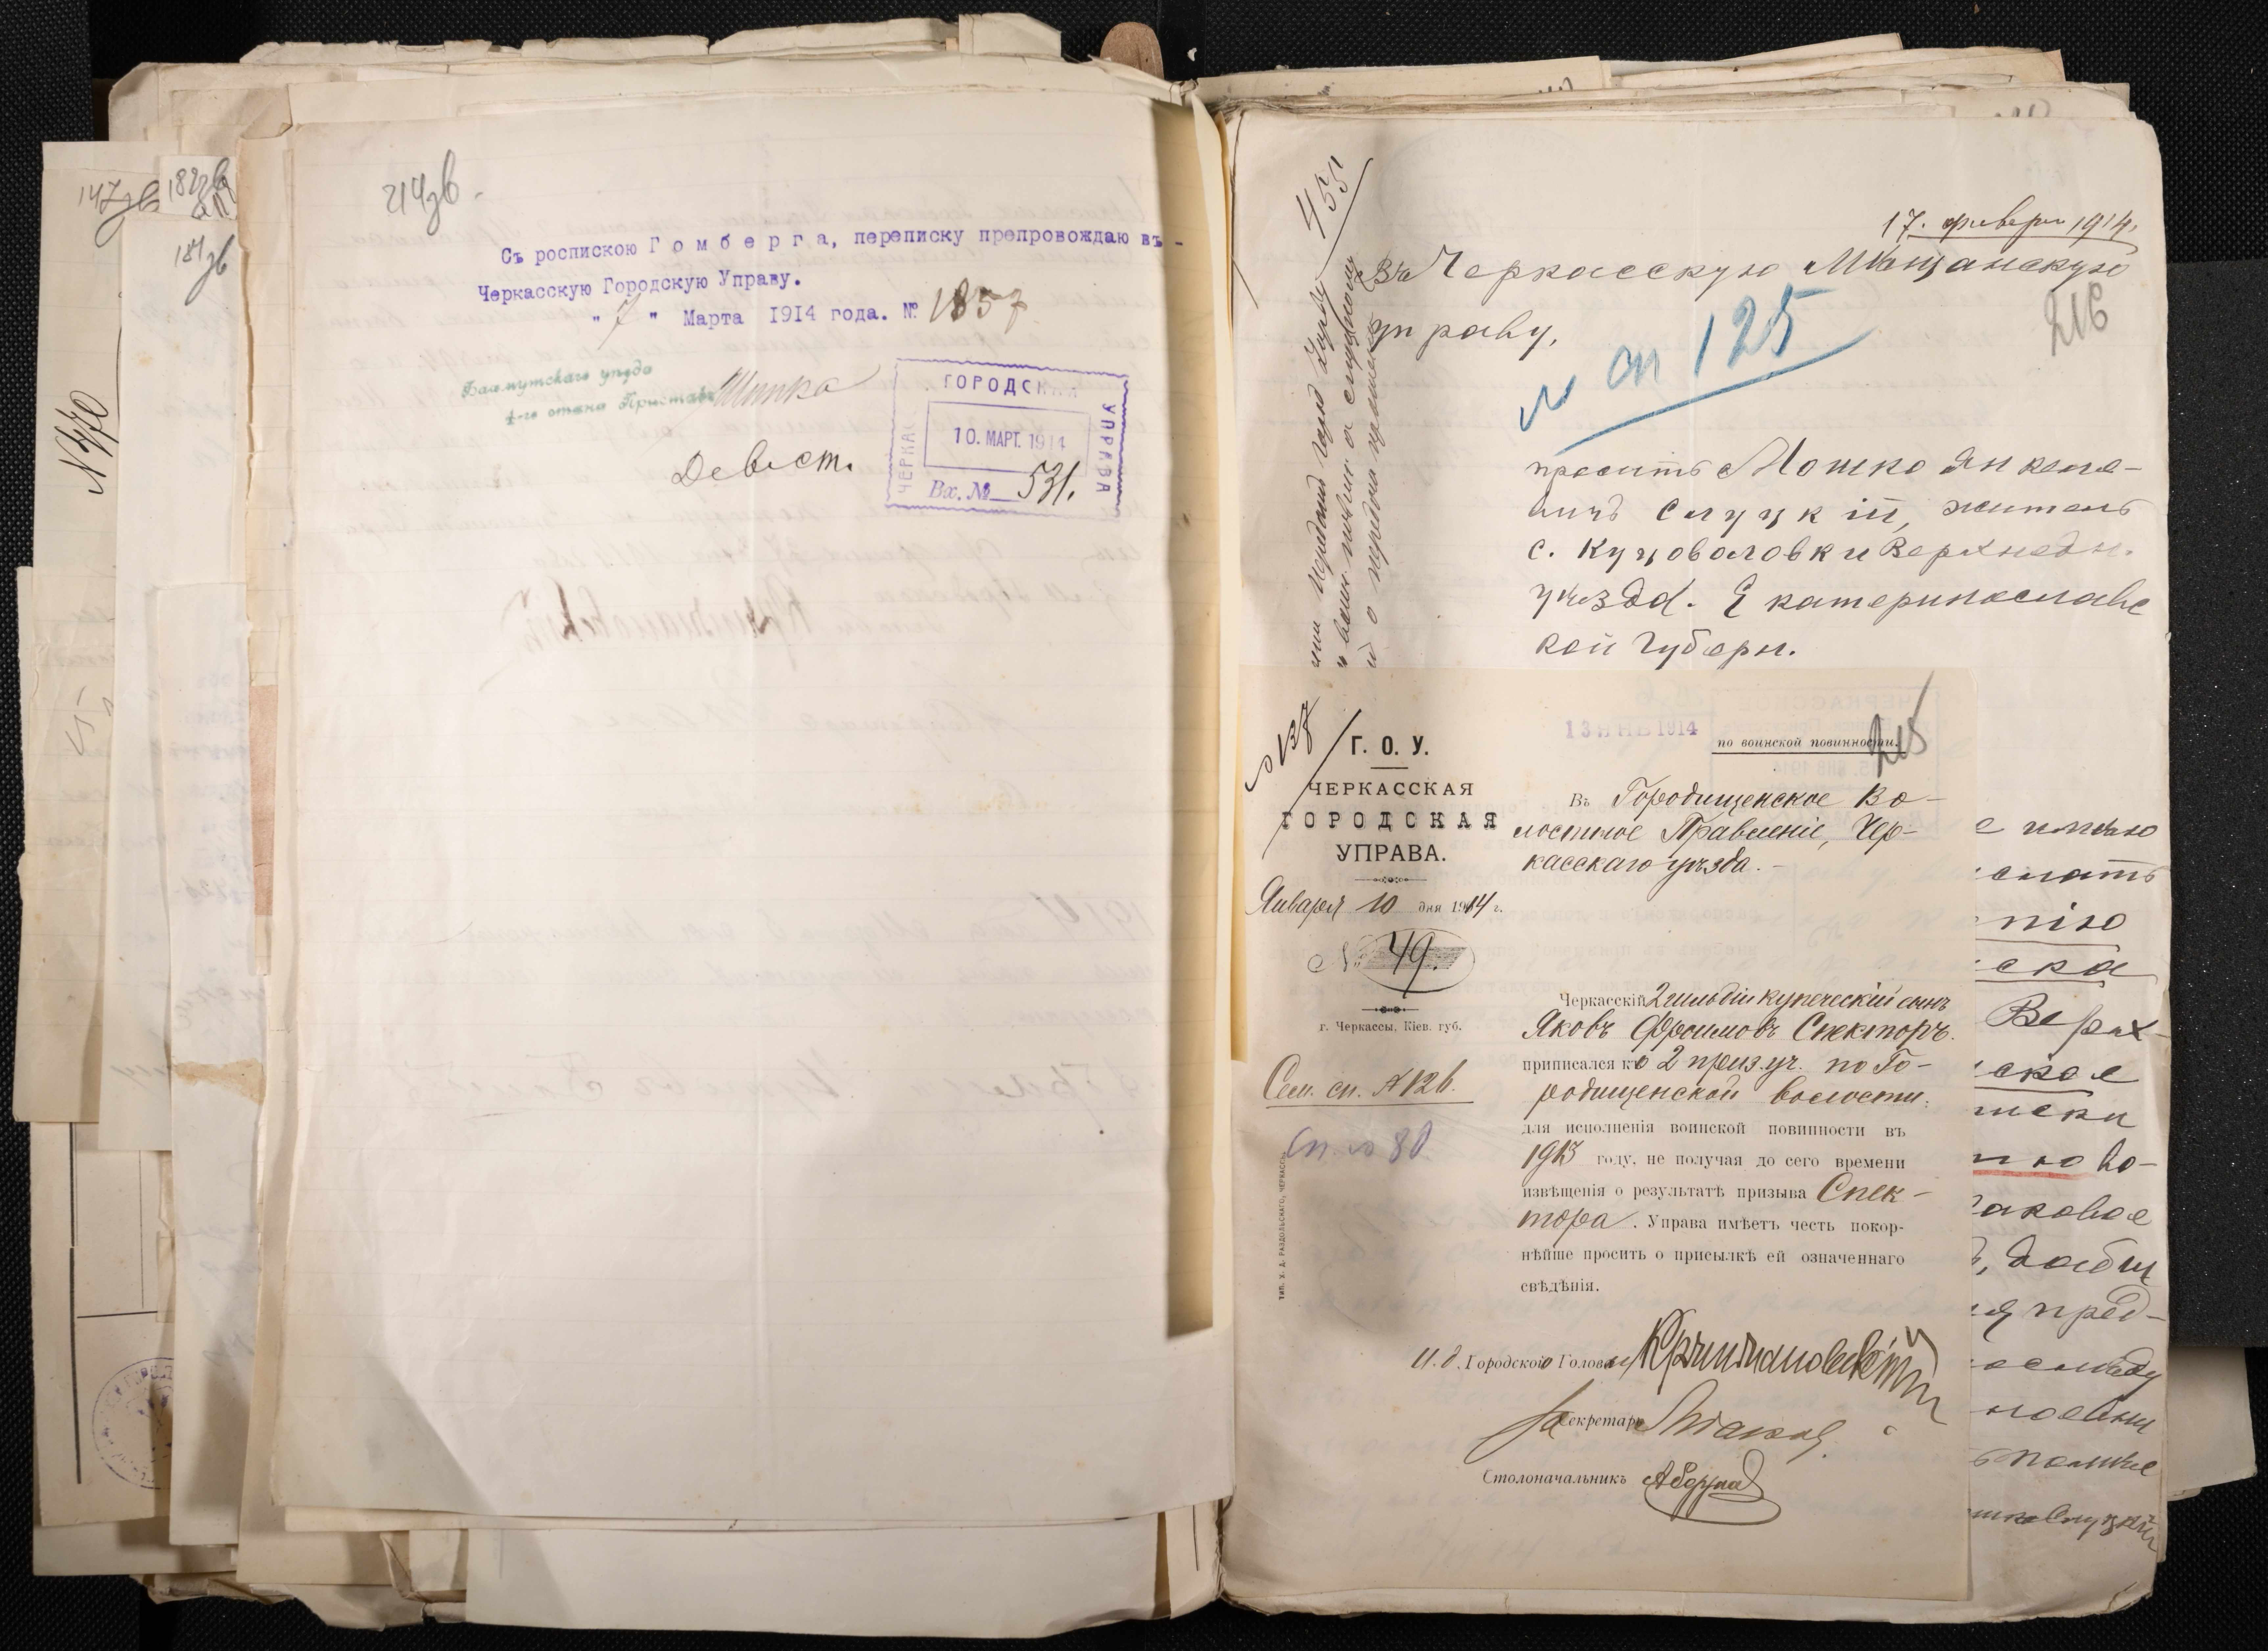 147 зв
182 зв
181 зв
N 370
214 зв.
Съ роспискою Гомберга, переписку препровождаю въ -
Черкасскую Городскую Управу.
" 7 " Марта 1914 года. № 1857
Бахмутскаго уѣзда
4-го стана Приставъ
ЧЕРКАС
ГОРОДСКАЯ
УПРАВА
10. МАРТ. 1914
Вх. № 531.
455
17. феврал 1914.
Въ Черкасскую Мѣщанскую
управу,
216
№ сп 125
проситъ Мошко Янкеле-
вичъ Слуцкій, житель
с. Куцоваловки Верхнедн.
уѣзда. Екатеринославс
кой Губерн.
№ 137
Г. О. У.
ЧЕРКАССКАЯ
ГОРОДСКАЯ
УПРАВА.
Января 10 дня 1914 г.
№ 49.
г. Черкассы, Кіев. губ.
Сем. сп. № 126.
Сп. № 80
ТИП. Х. Д. РАЗДОЛЬСКАГО, ЧЕРКАССЫ.
13 ЯНВ 1914
по воинской повинности.
215
Въ Городищенское Во-
лостное Правленіе, Чер-
касскаго уѣзда. -
Черкасскій 2 гильдіи купеческій сынъ
Яковъ Фроимовъ Спекторъ.
приписался къ 2 приз. уч. по Го-
родищенской волости.
для исполненія воинской повинности въ
1913 году, не получая до сего времени
извѣщенія о результатѣ призыва Спек-
тора. Управа имѣетъ честь покор-
нѣйше просить о присылкѣ ей означеннаго
свѣдѣнія.
И. д. Городского Головы Кржижановскій
За Секретаря
Столоначальникъ
е имѣю
слать
пію
ска
Верх-
ское
иски
во-
аковое
, дабы
я пред-
Слуцкій